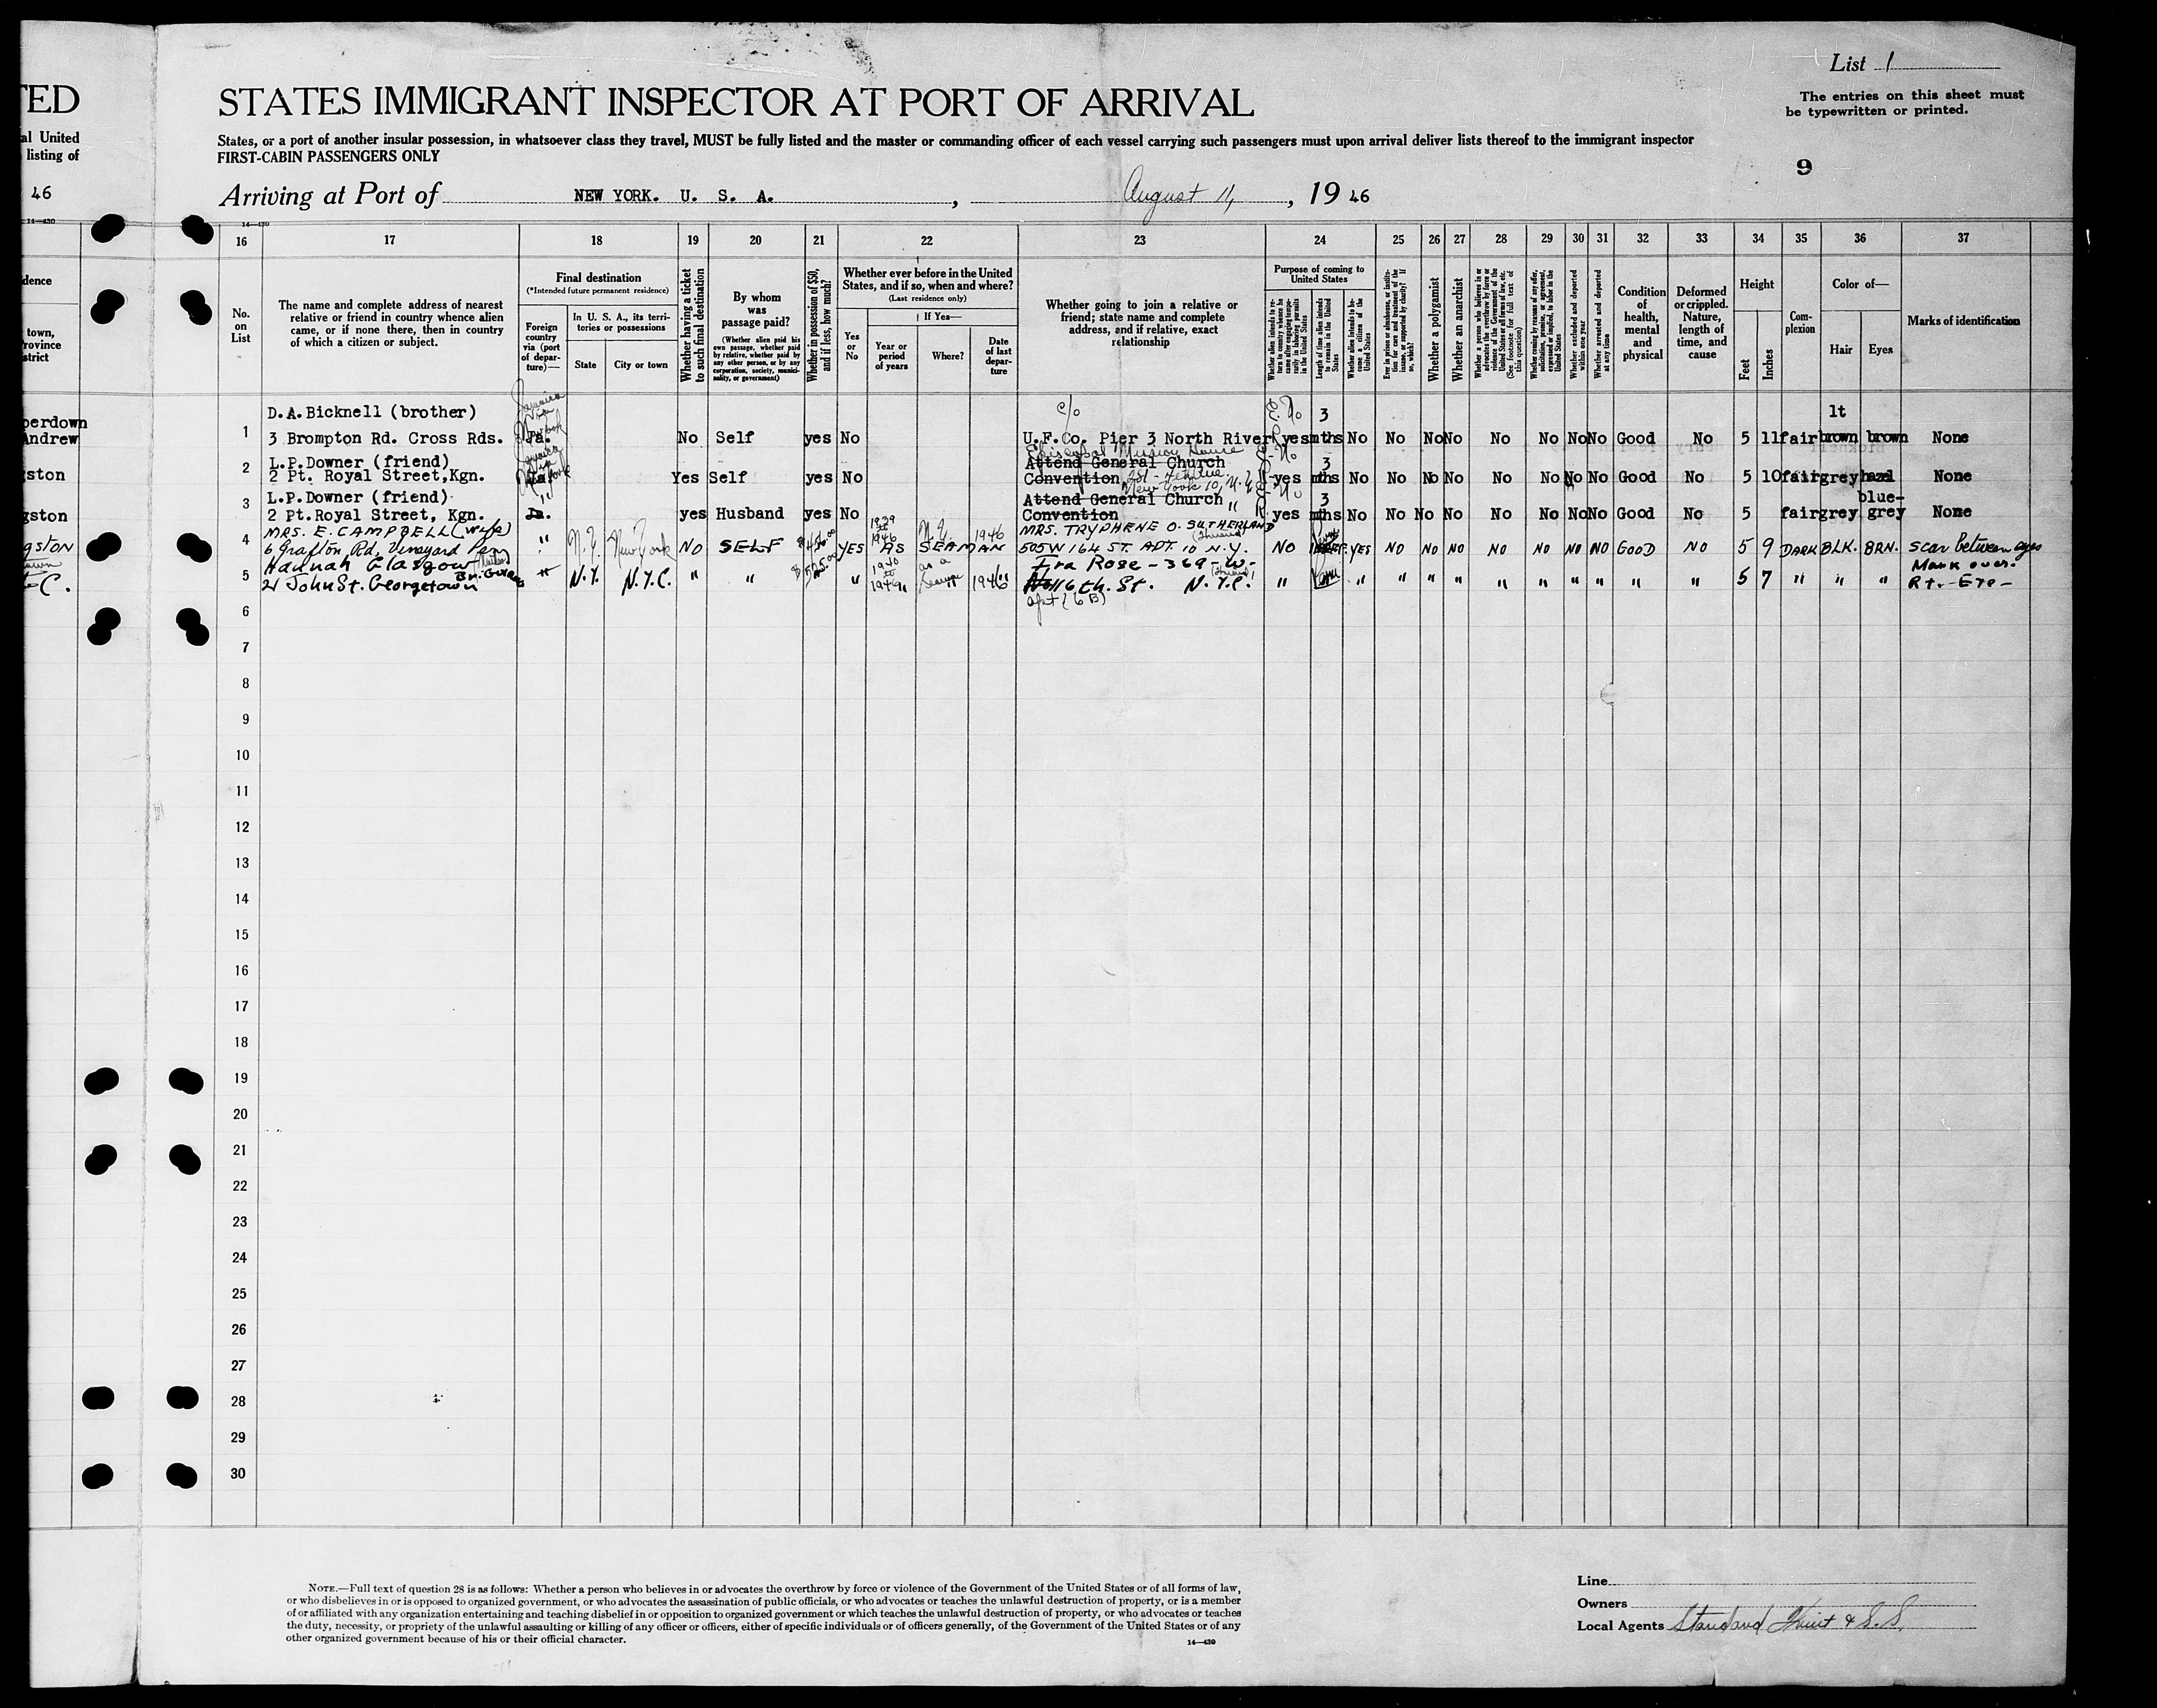 List 1
TED
STATES IMMIGRANT INSPECTOR AT PORT OF ARRIVAL
The entries on this sheet must
be typewritten or printed.
al United
listing of
States, or a port of another insular possession, in whatsoever class they travel, MUST be fully listed and the master or commanding officer of each vessel carrying such passengers must upon arrival deliver lists thereof to the immigrant inspector
FIRST-CABIN PASSENGERS ONLY
9
46
Arriving at Port of NEW YORK. U. S. A. , August 11, , 19 46
14—430
14—430
16 17 18 19 20 21 22 23 24 25 26 27 28 29 30 31 32 33 34 35 36 37
dence
town,
rovince
strict
No.
on
List
The name and complete address of nearest
relative or friend in country whence alien
came, or if none there, then in country
of which a citizen or subject.
Final destination
(*Intended future permanent residence)
Foreign
country
via (port
of depar-
ture)—
In U. S. A., its terri-
tories or possessions
State
City or town
Whether having a ticket
to such final destination
By whom
was
passage paid?
(Whether alien paid his
own passage, whether paid
by relative, whether paid by
any other person, or by any
corporation, society, munici-
pality, or government)
Whether in possession of $50,
and if less, how much?
Whether ever before in the United
States, and if so, when and where?
(Last residence only)
Yes
or
No
If Yes—
Year or
period
of years
Where?
Date
of last
depar-
ture
Whether going to join a relative or
friend; state name and complete
address, and if relative, exact
relationship
Purpose of coming to
United States
Whether alien intends to re-
turn to country whence he
came after engaging tempo-
rarily in laboring pursuits
in the United States
Length of time alien intends
to remain in the United
States
Whether alien intends to be-
come a citizen of the
United States
Ever in prison or almshouse, or institu-
tion for care and treatment of the
insane, or supported by charity? If
so, which?
Whether a polygamist
Whether an anarchist
Whether a person who believes in or
advocates the overthrow by force or
violence of the Government of the
United States or all forms of law, etc.
(See footnote for full text of
this question)
Whether coming by reasons of any offer,
solicitation, promise, or agreement,
expressed or implied, to labor in the
United States
Whether excluded and deported
within one year
Whether arrested and deported
at any time
Condition
of
health,
mental
and
physical
Deformed
or crippled.
Nature,
length of
time, and
cause
Height
Feet
Inches
Com-
plexion
Color of—
Hair
Eyes
Marks of identification
perdown
Andrew
1
D.A.Bicknell (brother)
3 Brompton Rd. Cross Rds. Ja. No Self yes No
c/o
U.F.Co. Pier 3 North River yes 3 mths No No No No No No No No Good No 5 11 fair lt brown brown None
gston
2
L.P.Downer (friend)
2 Pt. Royal Street,Kgn. Ja. Yes Self yes No
Episcopal Mission House
Attend General Church
Convention 281 - 4th Ave.
New York 10, N.Y.
No yes 3 mths No No No No No No No No Good No 5 10 fair grey hazel None
gston
3
L.P.Downer (friend)
2 Pt.Royal Street, Kgn. Ja. yes Husband yes No
Attend General Church "
Convention
yes 3 mths No No No No No No No No Good No 5 fair grey blue-
grey None
GSTON
4
MRS. E. CAMPBELL (wife)
6 Grafton Rd, Vineyard Pen " N.Y. New York NO SELF YES 1939 to 1946 N.Y. AS SEAMAN 1946
MRS. TRYPHENE O. SUTHERLAND
(friend)
505 W 164 ST. APT. 10 N.Y. NO YES NO NO NO NO NO NO NO GOOD NO 5 9 DARK BLK. BRN. scar between eyes
C.
5
Hannah Glasgow (Mother)
21 John St. Georgetown Br. Guiana " N.Y. N.Y.C. " " " 1940 to as a Seaman 1946
Ira Rose - 369 - W -
(friend)
116th. St. N.Y.C.
Apt (6B)
" " " " " " " " " " " 5 7 " " " Mark over.
Rt. Eye -
6
7
8
9
10
11
12
13
14
15
16
17
18
19
20
21
22
23
24
25
26
27
28
29
30
NOTE.—Full text of question 28 is as follows: Whether a person who believes in or advocates the overthrow by force or violence of the Government of the United States or of all forms of law,
or who disbelieves in or is opposed to organized government, or who advocates the assassination of public officials, or who advocates or teaches the unlawful destruction of property, or is a member
of or affiliated with any organization entertaining and teaching disbelief in or opposition to organized government or which teaches the unlawful destruction of property, or who advocates or teaches
the duty, necessity, or propriety of the unlawful assaulting or killing of any officer or officers, either of specific individuals or of officers generally, of the Government of the United States or of any
other organized government because of his or their official character.
14—430
Line
Owners
Local Agents Standard Fruit & S.S.